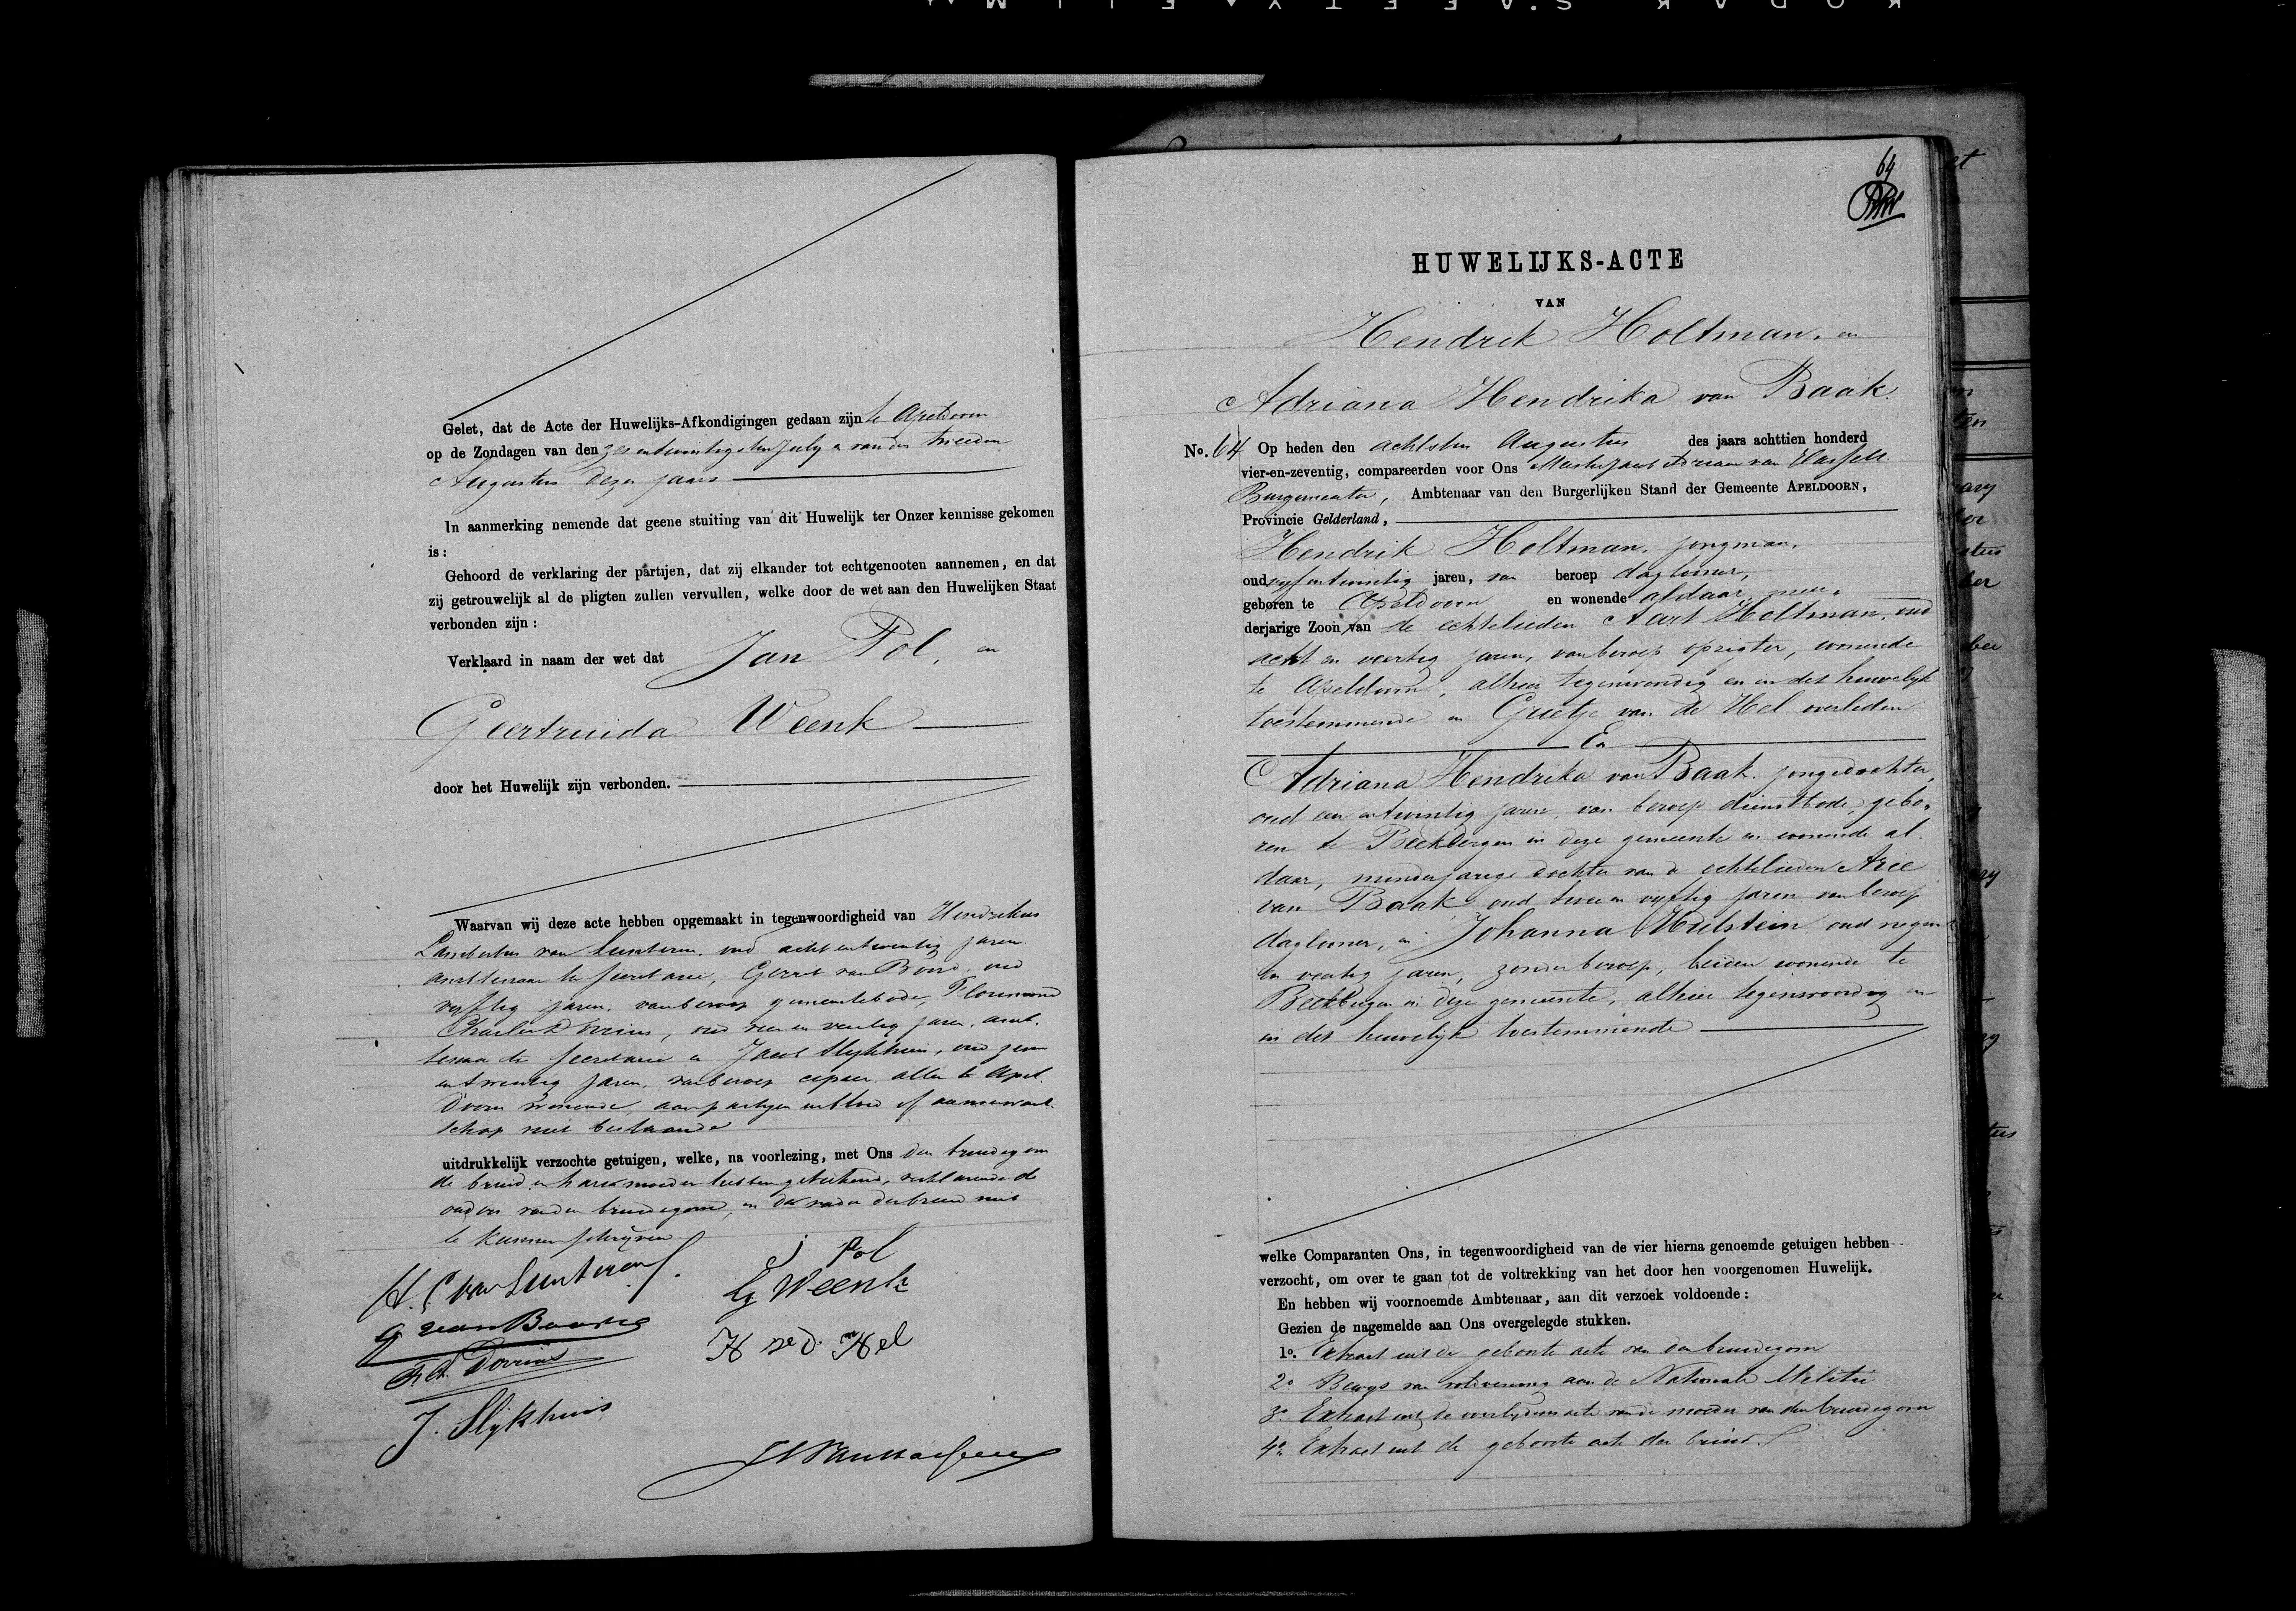 Gelet, dat de Acte der Huwelijks-Afkondigingen gedaan zijn te Apeldoorn
op de Zondagen van den zesentwintigsten July en van den tweeden
Augustus dezes jaars
In aanmerking nemende dat geene stuiting van dit Huwelijk ter Onzer kennisse gekomen
is:
Gehoord de verklaring der partijen, dat zij elkander tot echtgenooten aannemen, en dat
zij getrouwelijk al de pligten zullen vervullen, welke door de wet aan den Huwelijken Staat
verbonden zijn:
Verklaard in naam der wet dat Jan Pol, en
Geertruida Weenk
door het Huwelijk zijn verbonden.
Waarvan wij deze acte hebben opgemaakt in tegenwoordigheid van Hendrikus
Lambertus van Lunteren, oud achtentwintig jaren
ambtenaar ter secretarie, Gerrit van oud
vyftig jaren, van beroep gemeentebode,
Dorrius, oud en veertig jaren, amb-
tenaar ter secretarie en Jacob Slijkhuis, oud zeven
entwintig jaren, van beroep allen te Apel-
doorn wonende, aan partyen in bloed of aanverwant-
schap niet bestaande
uitdrukkelijk verzochte getuigen, welke, na voorlezing, met Ons den bruidegom
de bruid en hare moeder hebben geteekend, verklarende de
ouders van den bruidegom, en de vader der bruid niet
te kunnen schrijven
H. L. van Lunteren
J Pol
G Weenk
G van
H v. d. Hel
F. C. Dorrius
J. Slijkhuis
64
HUWELIJKS-ACTE
VAN
Hendrik Holtman, en
Adriana Hendrika van Baak.
No. 64 Op heden den achtsten Augustus des jaars achttien honderd
vier-en-zeventig, compareerden voor Ons Meester Jacob Adriaan van Hasselt
Burgemeester, Ambtenaar van den Burgerlijken Stand der Gemeente APELDOORN,
Provincie Gelderland,
Hendrik Holtman, jongman,
oud vyfentwintig jaren, van beroep daglooner,
geboren te Apeldoorn en wonende aldaar, meer-
derjarige Zoon van de echtelieden Aart Holtman, oud
acht en veertig jaren, van beroep opzigter, wonende
te Apeldoorn, alhier tegenwoordig en in dit huwelijk
toestemmende en Grietje van de Hel overleden
En
Adriana Hendrika van Baak, jongedochter,
oud een entwintig jaren, van beroep dienstbode, gebo-
ren te Beekbergen in deze gemeente en wonende al-
daar, minderjarige dochter van de echtelieden Arie
van Baak oud twee en vyftig jaren van beroep
daglooner, en Johanna Mulstein oud negen
en veertig jaren, zonder beroep, beiden wonende te
Beekbergen in deze gemeente, alhier tegenwoordig en
in dit huwelijk toestemmende
welke Comparanten Ons, in tegenwoordigheid van de vier hierna genoemde getuigen hebben
verzocht, om over te gaan tot de voltrekking van het door hen voorgenomen Huwelijk.
En hebben wij voornoemde Ambtenaar, aan dit verzoek voldoende:
Gezien de nagemelde aan Ons overgelegde stukken.
1o. Extract uit de geboorte acte van den bruidegom
2o Bewys van voldoening aan de Nationale Militie
3o. Extract uit de overlydens acte van de moeder van den bruidegom
4o. Extract uit de geboorte acte der bruid.